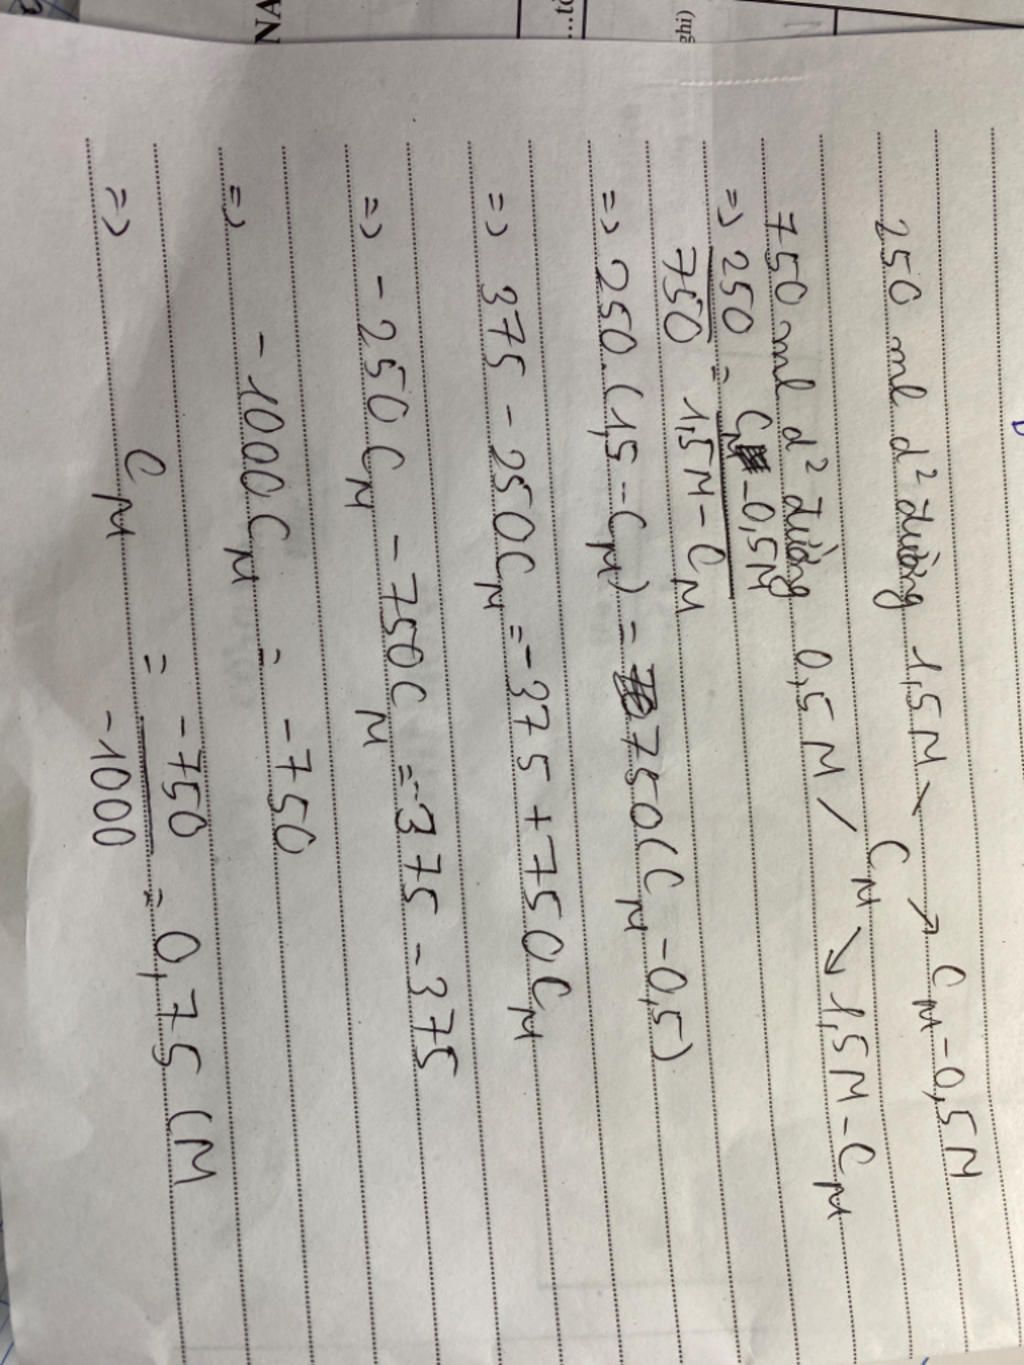 250 ml d² đường 1,5M \ ↗ C_M - 0,5M
C_M
750 ml d² đường 0,5M / ↘ 1,5M - C_M
=> 250/750 = (C_M - 0,5M)/(1,5M - C_M)
=> 250.(1,5 - C_M) = 750(C_M - 0,5)
=> 375 - 250C_M = -375 + 750C_M
=> - 250C_M - 750C_M = -375 - 375
=> - 1000C_M = - 750
=> C_M = -750/-1000 = 0,75 (M
NA
ghi)